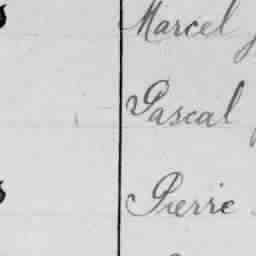 Marcel
Pascal
Pierre